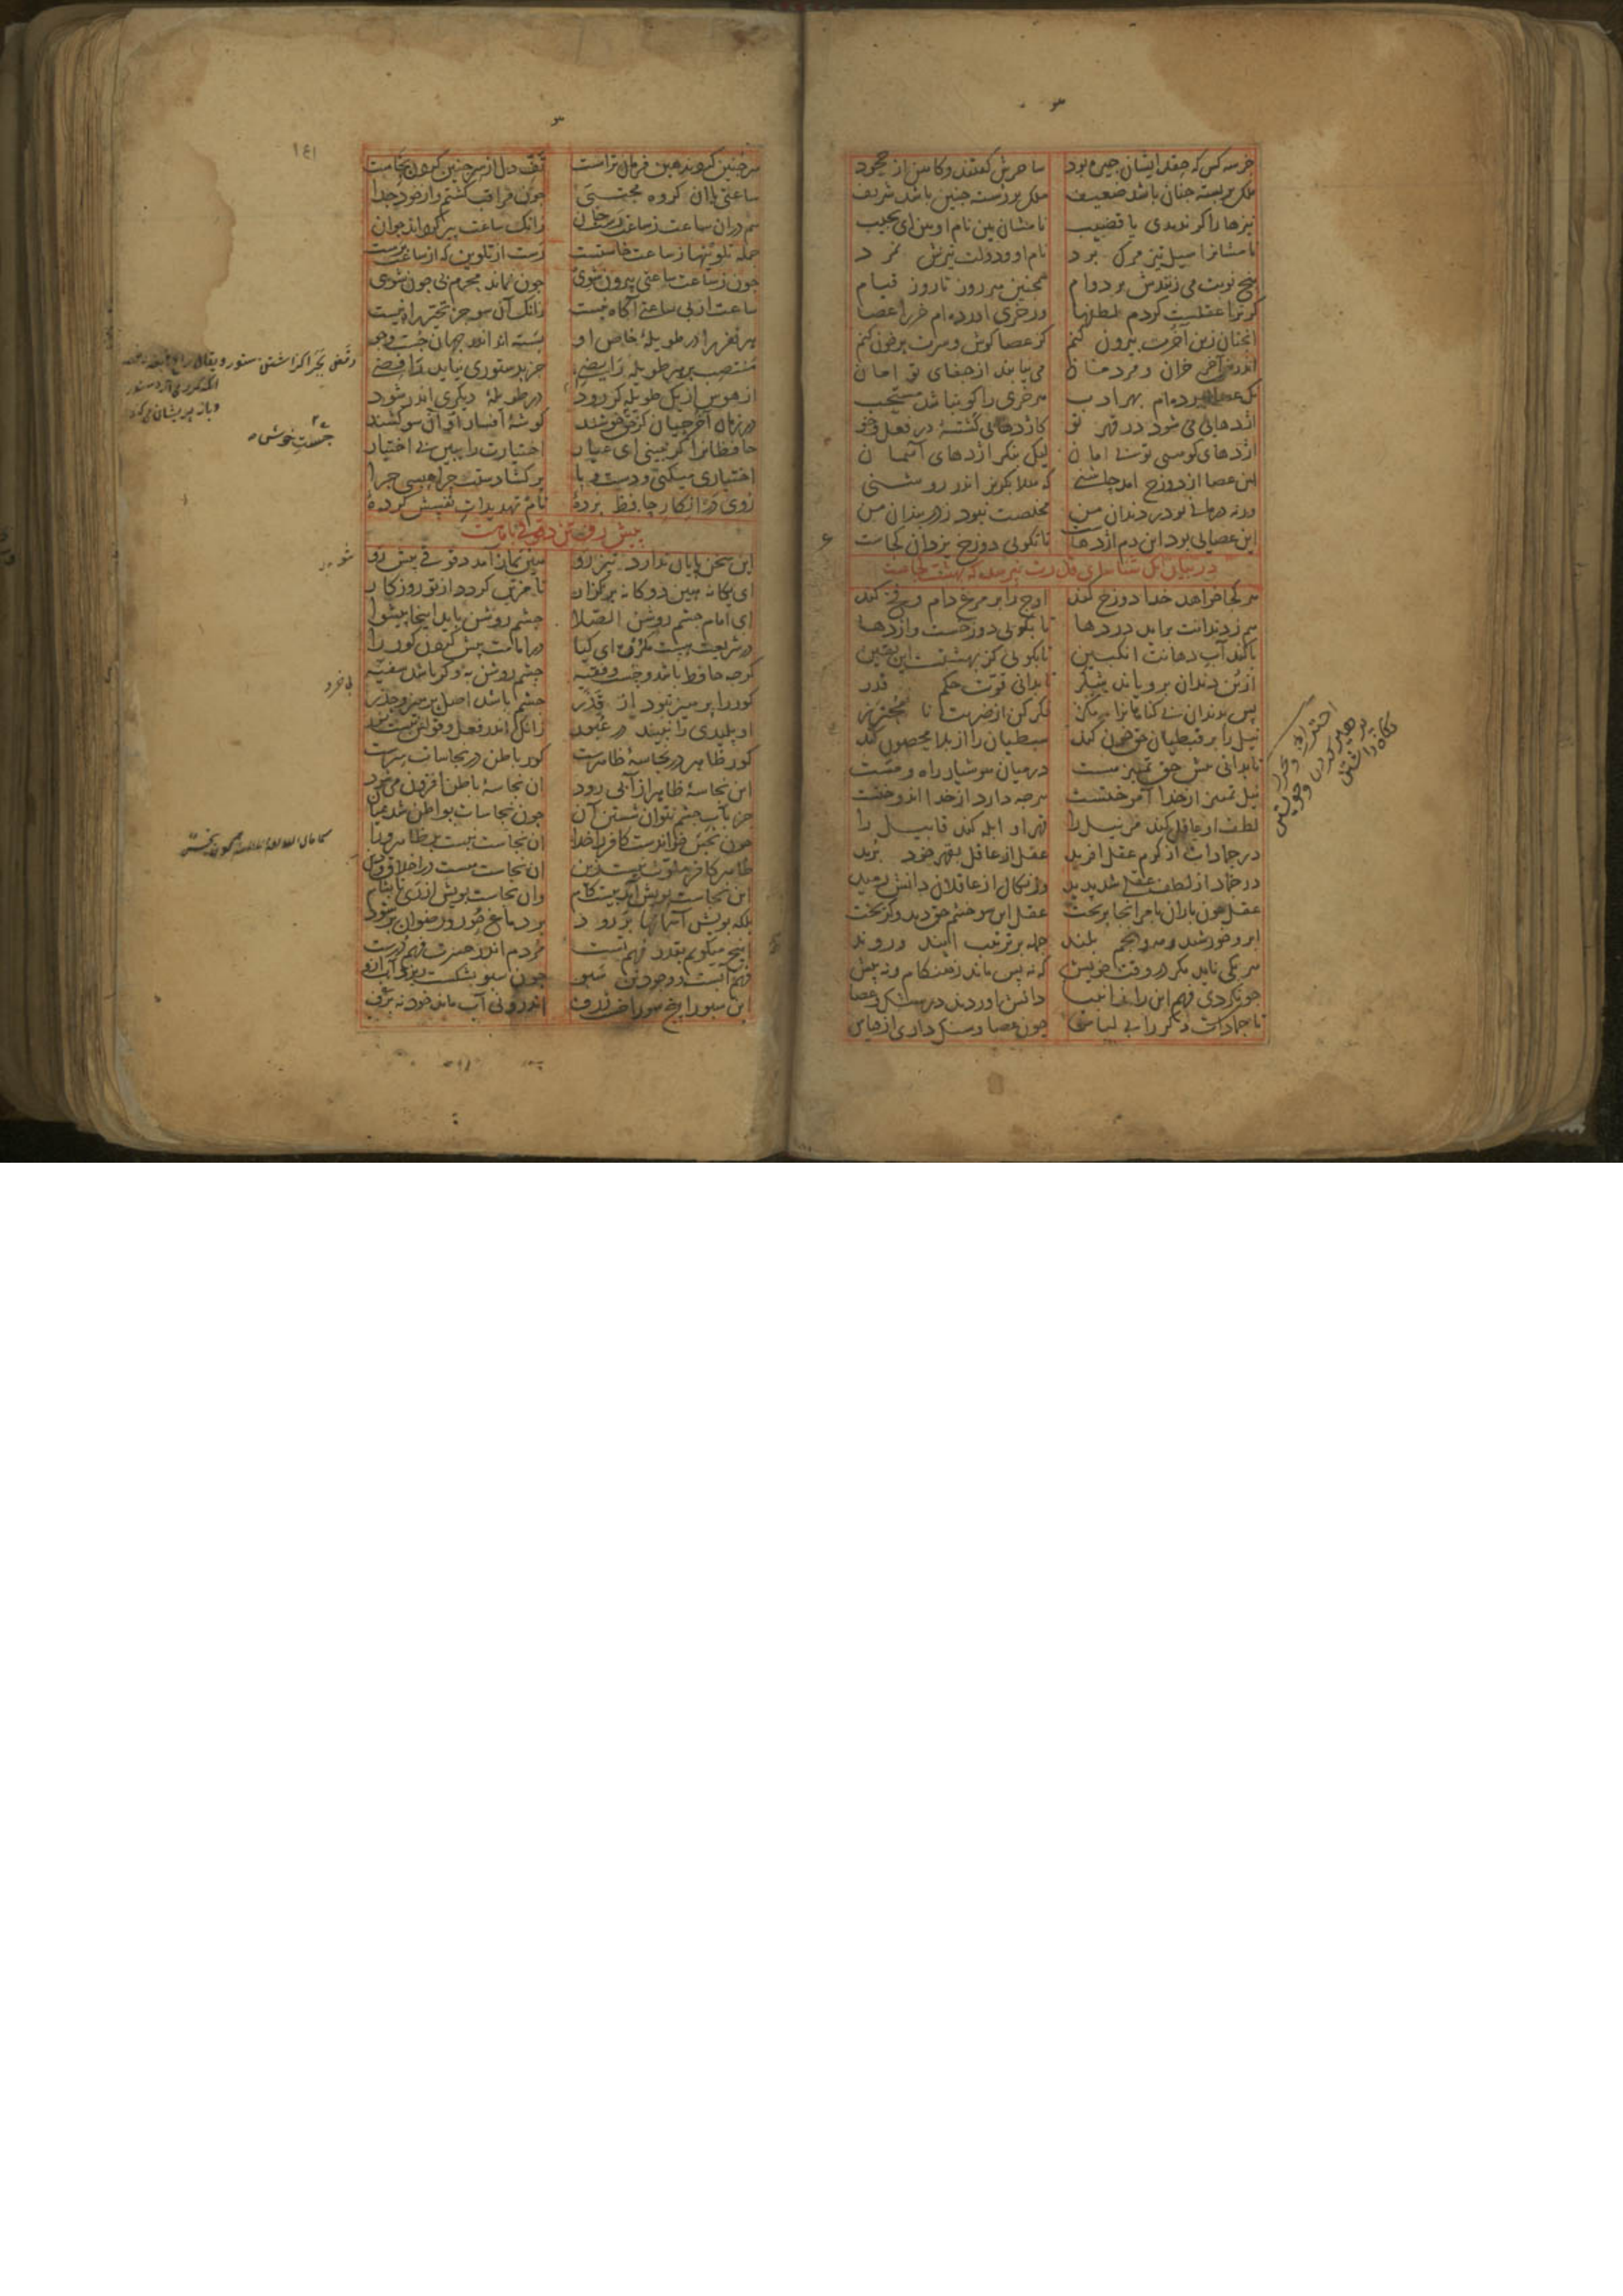 خر سه کس که حقد ایشان خیره بود ساحرش گفتند و کاهن از جحود
ملک بر بسته چنان باشد ضعیف ملک بر رسته چنین باشد شریف
نیزها را گر ندیدی با قضیب نامشان بین نام او بین ای نجیب
نامشانرا سیل تیز مرگ برد نام او و دولت تیزش نمرد
پنج نوبت می زنندش بر دوام همچنین هر روز تا روز قیام
گر ترا عقلست کردم لطفها ور خری آورده‌ام خر را عصا
آنچنان زین آخرت بیرون کنم کز عصا گوش و سرت پر خون کنم
اندرین آخر خران و مردمان می نیابند از جفای تو امان
یک عصا آورده‌ام بهر ادب هر خری را کو نباشد مستحب
اژدهایی می شود در قهر تو کاژدهایی گشتهٔ در فعل و خو
اژدهای کوهیی تو بی امان لیک بنگر اژدهای آسمان
این عصا از دوزخ آمد چاشنی که هلا بگریز اندر روشنی
ورنه درمانی تو در دندان من مخلصت نبود ز دربندان من
این عصایی بود این دم اژدهاست تا نگویی دوزخ یزدان کجاست
در بیان آنک شناسای قدرت نپرسد که بهشت کجاست
هر کجا خواهد خدا دوزخ کند اوج را بر مرغ دام و فخ کند
هم ز دندانت برآید دردها تا بگویی دوزخست و اژدها
یا کند آب دهانت انگبین تا بگویی کز بهشتست این یقین
از بن دندان برویاند شکر تا بدانی قوت حکم قدر
پس بدندان بی گناهانرا مگز فکر کن از ضربت نا محترز
نیل را بر قبطیان حق خون کند سبطیان را از بلا محصون کند
تا بدانی پیش حق تمییز هست در میان هوشیار راه و مست
نیل تمییز از خدا آموختست
لطف او عاقل کند مر نیل را قهر او ابله کند قابیل را
در جمادات از کرم عقل آفرید عقل از عاقل بقهر خود برید
در جماد از لطف عقلی شد پدید وز نکال از عاقلان دانش رمید
عقل چون باران بامر آنجا بریخت عقل این سو خشم حق دید و گریخت
ابر و خورشید و مه و نجم بلند جمله بر ترتیب آیند و روند
هر یکی ناید مگر در وقت خویش که نه پس ماند ز هنگام و نه پیش
چون نکردی فهم این را ز انبیا دانش آوردند در سنگ و عصا
تا جمادات دگر را بی لباس چون عصا و سنگ داری از قیاس
احتراز و تحرز
پرهیز کردن و خویشتن
نگاه داشتن
۱۴۱
ساعتی با آن گروه مجتبی چون مراقب گشتم و از خود جدا
هم در آن ساعت ز ساعت رست جان زانک ساعت پیر گرداند جوان
جمله تلوینها ز ساعت خاستست رست از تلوین که از ساعت برست
چون ز ساعت ساعتی بیرون شوی چون نماند محرم بی چون شوی
ساعت از بی ساعتی آگاه نیست زانک آن سو جز تحیر راه نیست
هر نفر را در طویلهٔ خاص او بسته‌اند اندر جهان جست و جو
منتصب بر هر طویله رایضی جز بدستوری نیاید رافضی
از هوس از یک طویله گر رود در طویلهٔ دیگری اندر شود
در زمان آخرچیان خوش گوشهٔ افسار او آن سو کشند
حافظانرا گر نبینی ای عیار اختیارت را ببین بی اختیار
اختیاری میکنی و دست و پا بر گشادستت چرا حبسی چرا
روی در انکار حافظ بردهٔ نام تهدیدات نفسش کردهٔ
پیش رفتن دقوقی بامامت
این سخن پایان ندارد تیز رو هین نماز آمد دقوقی پیش رو
ای یگانه هین دوگانه برگزار تا مزین گردد از تو روزگار
ای امام چشم روشن الصلا چشم روشن باید اینجا پیشوا
در شریعت هست مکروه ای کیا در امامت پیش کردن کور را
گرچه حافظ باشد و چست و فقیه چشم روشن به و گر باشد سفیه
کور را پرهیز نبود از قذر چشم باشد اصل پرهیز و حذر
او پلیدی را نبیند در عبور
کور ظاهر در نجاسهٔ ظاهرست کور باطن در نجاسات سرست
این نجاسهٔ ظاهر از آبی رود آن نجاسهٔ باطن افزون می شود
جز بآب چشم نتوان شستن آن چون نجاسات بواطن شد عیان
چون نجس خواندست کافر را خدا آن نجاست نیست بر ظاهر ورا
ظاهر کافر ملوث نیست زین آن نجاست هست در اخلاق و دین
این نجاست بویش آید بیست گام وان نجاست بویش از ری تا بشام
بلکه بویش آسمانها بر رود بر دماغ حور و رضوان بر شود
اینچ میگویم بقدر فهم تست مردم اندر حسرت فهم درست
فهم آبست و وجود تن سبو چون سبو بشکست ریزد آب ازو
این سبو را پنج سوراخست ژرف اندرو نی آب ماند خود نه برف
چست خوش
بی خرد